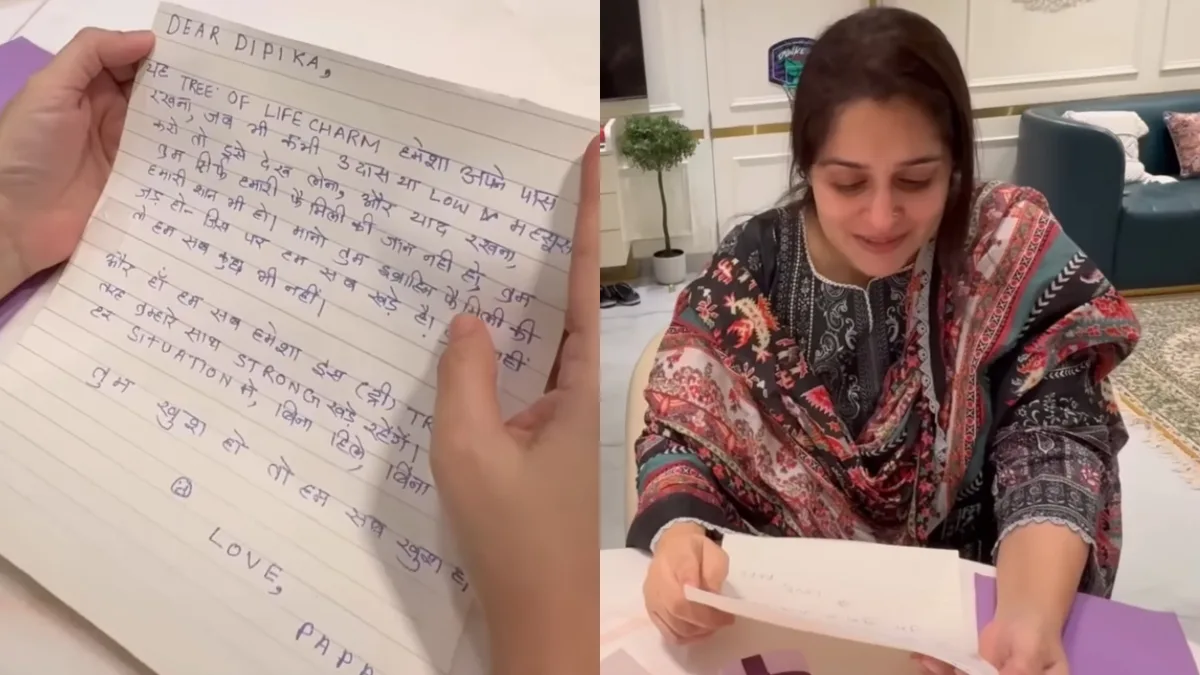 DEAR DIPIKA,
यह TREE OF LIFE CHARM हमेशा अपने पास
रखना, जब भी कभी उदास या LOW महसूस
करो तो इसे देख लेना, और याद रखना,
तुम सिर्फ हमारी फैमिली की जान नही हो, तुम
हमारी शान भी हो। मानो तुम इब्राहिम फैमिली की
जड़ हो- जिस पर हम सब खड़े है। नहीं
तो हम सब कुछ भी नहीं।
और हाँ हम सब हमेशा इस (ट्री)
तरह तुम्हारे साथ STRONG खड़े रहेंगे।
हर SITUATION मे, बिना हिले, बिना
तुम खुश हो तो हम सब खुश है,
LOVE,
PAPA